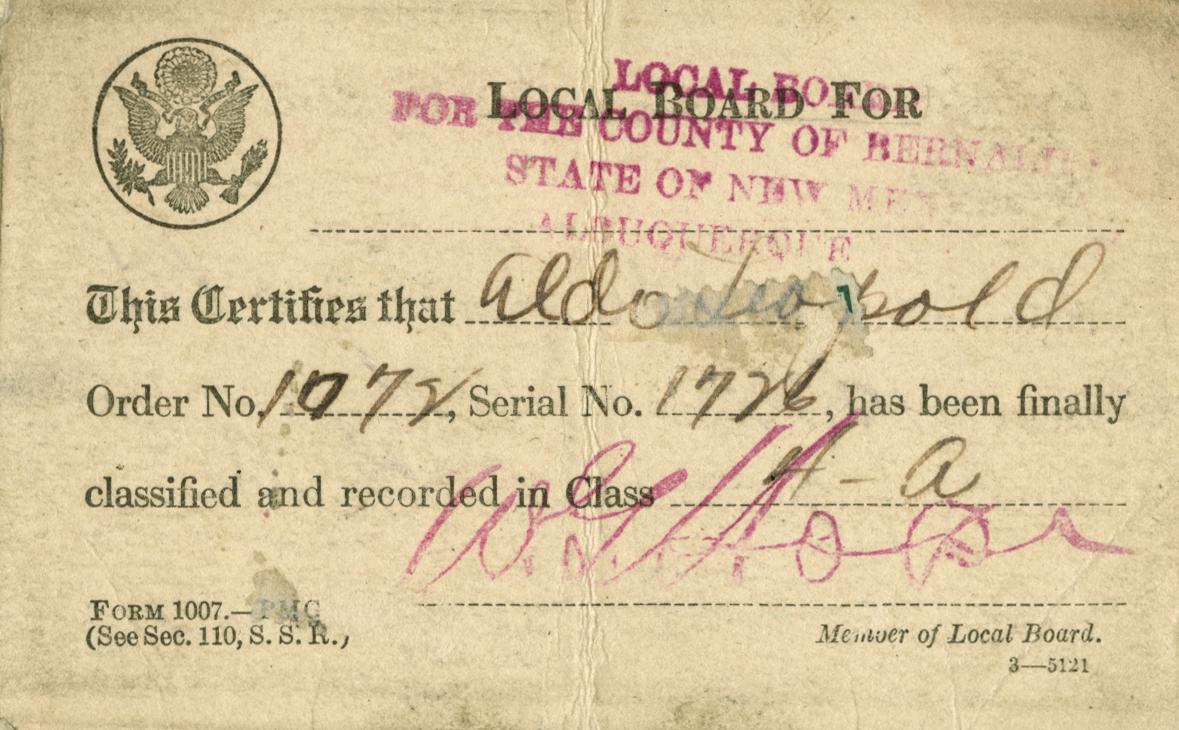 LOCAL BOARD FOR
LOCAL BOARD
FOR THE COUNTY OF BERNALILLO
STATE OF NEW MEX
ALBUQUERQUE
This Certifies that Aldo Leopold
Order No. 1072, Serial No. 1726, has been finally
classified and recorded in Class 4-a
FORM 1007.—PMG
(See Sec. 110, S. S. R.)
Member of Local Board.
3—5121